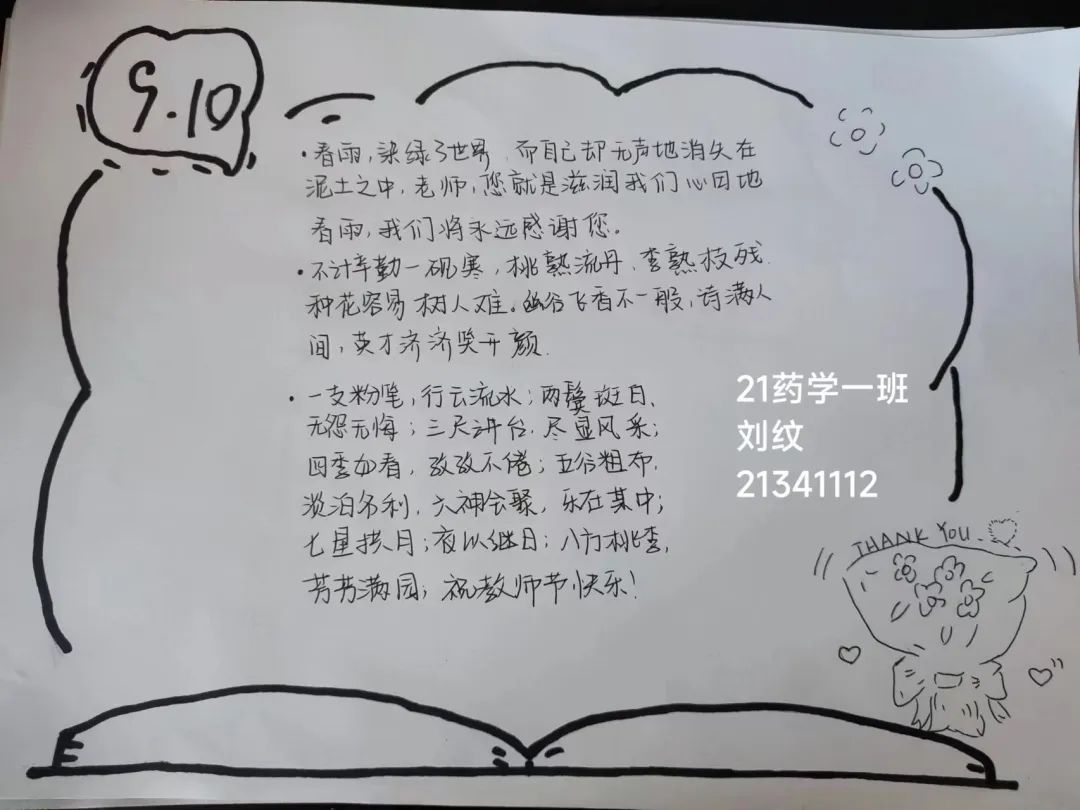 9.10
·春雨,染绿了世界,而自己却无声地消失在
泥土之中,老师,您就是滋润我们心田地
春雨,我们将永远感谢您。
·不计辛勤一砚寒,桃熟流丹,李熟枝残
种花容易树人难。幽谷飞香不一般,诗满人
间,英才济济笑开颜.
·一支粉笔,行云流水;两鬓斑白,
无怨无悔;三尺讲台,尽显风采;
四季如春,孜孜不倦;五谷粗布,
淡泊名利,六神会聚,乐在某中;
七星拱月;夜以继日;八方桃李,
芳芳满园;祝教师节快乐!
21药学一班
刘纹
21341112
THANK YOU